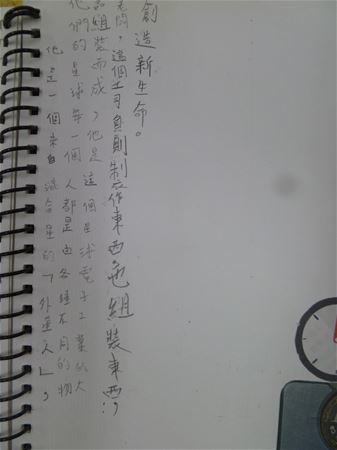 他是一個來自綜合星的「外星人」，
他們的星球每一個人都是由各種不同的物
品組裝而成，他是這個星球電子工業的大
老闆，這個工司負則製作東西，也組裝東西，
創造新生命。